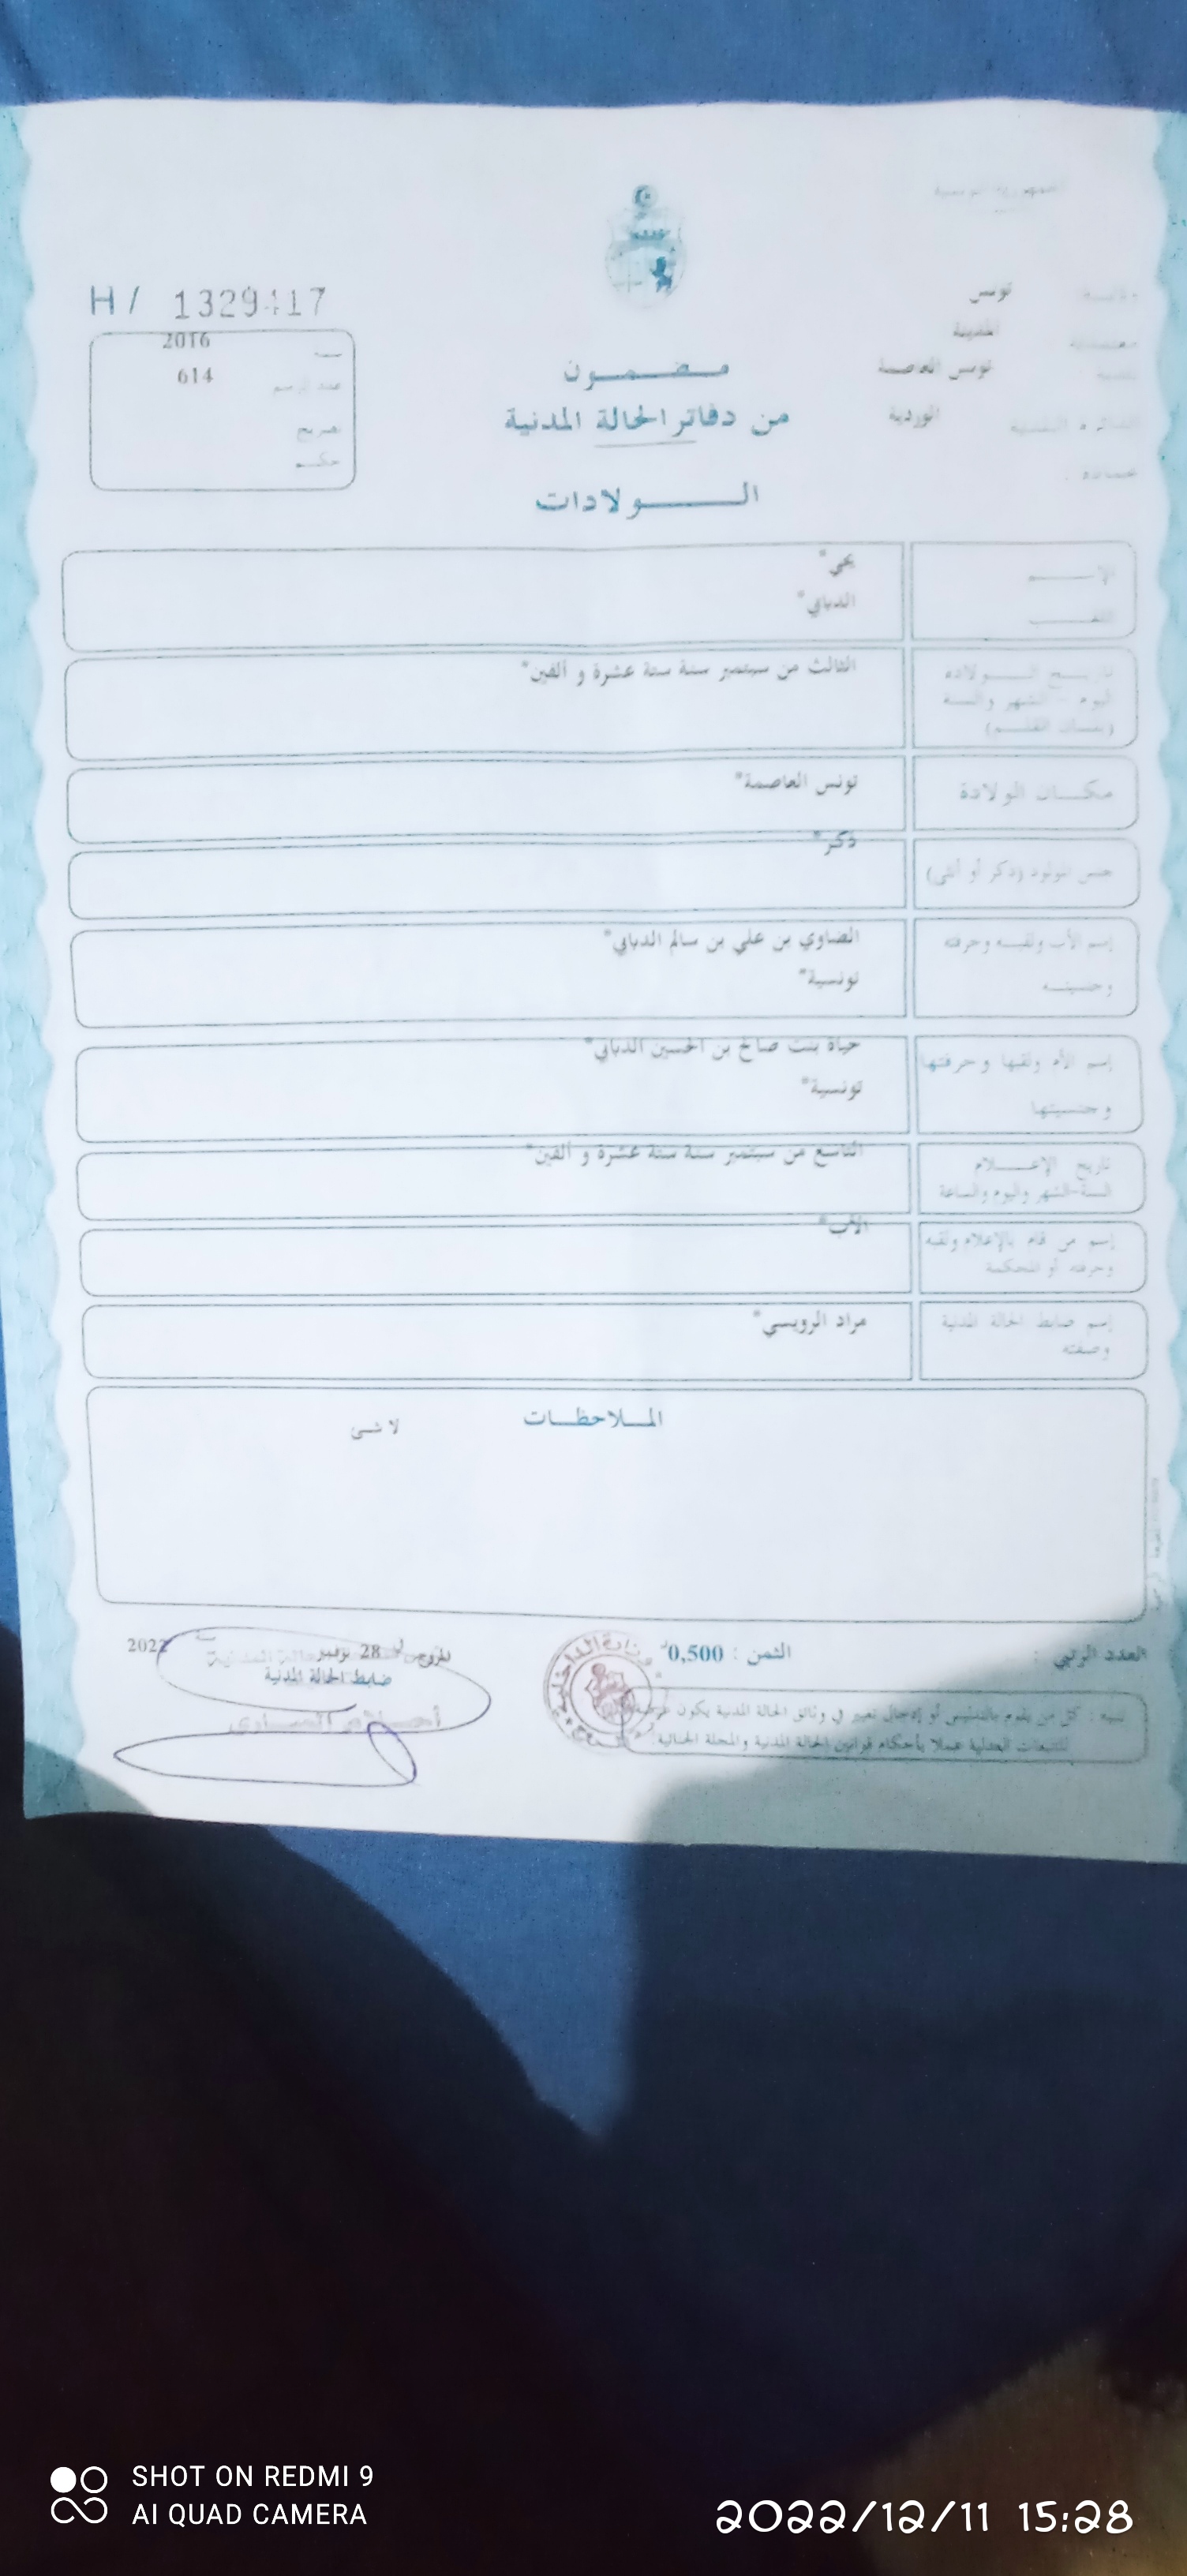 الجمهورية التونسية
ولايـــة تونس
معتمدية المدينة
بلدية تونس العاصمة
الدائرة البلدية الوردية
عمادة :
H / 1329417
سنة 2016
عدد الرسم 614
تصريح
حكم
مـضـمـون
من دفاتر الحالة المدنية
الـــولادات
الإســـم يحي*
اللقـــب الدبابي*
تاريـخ الـولادة
اليوم - الشهر والسنة
(بلسان القلم)
الثالث من سبتمبر سنة ستة عشرة و ألفين*
مكـان الولادة تونس العاصمة*
جنس المولود (ذكر أو أنثى) ذكر*
إسم الأب ولقبـه وحرفته الضاوي بن علي بن سالم الدبابي*
وجنسيتـه تونسية*
إسم الأم ولقبها وحرفتها حياة بنت صالح بن الحسين الدبابي*
وجنسيتها تونسية*
تاريخ الإعـلام
السنة-الشهر واليوم والساعة
التاسع من سبتمبر سنة ستة عشرة و ألفين*
إسم من قام بالإعلام ولقبه
وحرفته أو المحكمة
الأب*
إسم ضابط الحالة المدنية
وصفته
مراد الرويسي*
المـلاحظـات
لا شىء
العدد الرتبي :
الثمن : 0,500د
وزارة الداخلية
28 نوفمبر
2022
ضابط الحالة المدنية
تنبيه : كل من يقوم بالتدليس أو إدخال تغيير في وثائق الحالة المدنية يكون عرضة
للتتبعات العدلية عملا بأحكام قوانين الحالة المدنية والمجلة الجنائية.
SHOT ON REDMI 9
AI QUAD CAMERA
2022/12/11 15:28